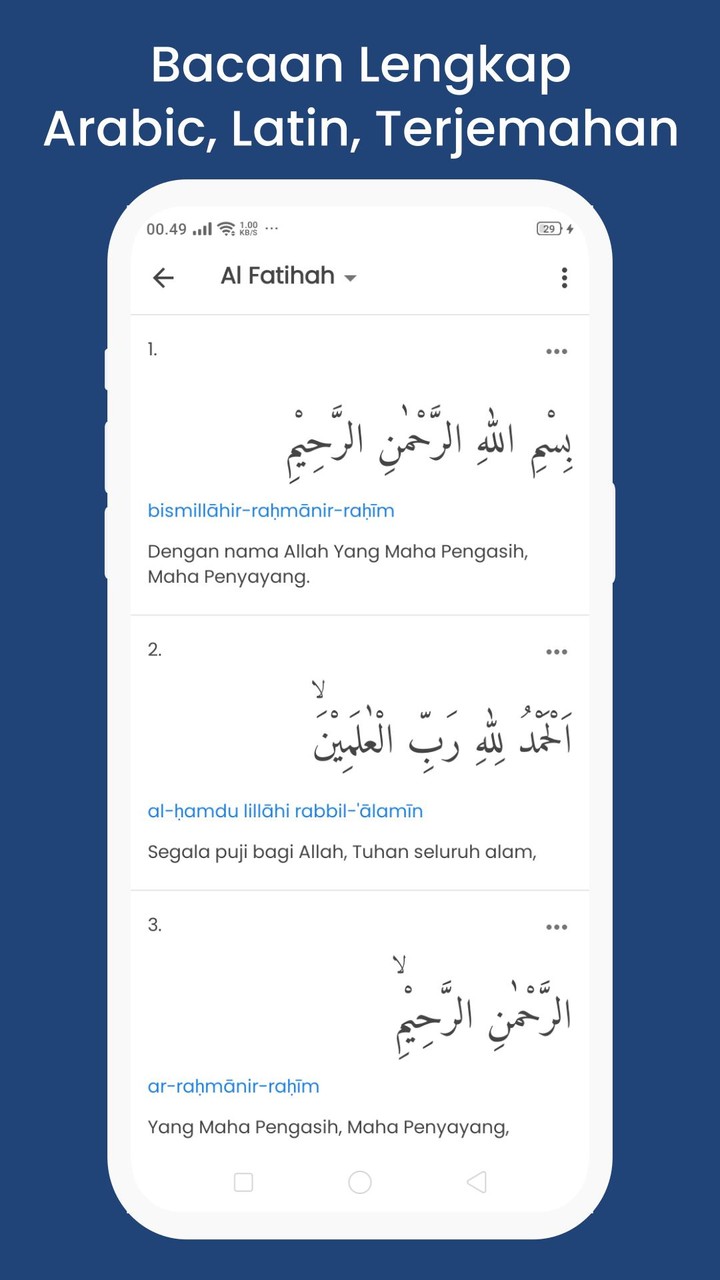 Bacaan Lengkap
Arabic, Latin, Terjemahan
00.49 1.00 KB/S ... 29
Al Fatihah
1.
بِسْمِ اللّٰهِ الرَّحْمٰنِ الرَّحِيْمِ
bismillāhir-raḥmānir-raḥīm
Dengan nama Allah Yang Maha Pengasih,
Maha Penyayang.
2.
اَلْحَمْدُ لِلّٰهِ رَبِّ الْعٰلَمِيْنَۙ
al-ḥamdu lillāhi rabbil-'ālamīn
Segala puji bagi Allah, Tuhan seluruh alam,
3.
الرَّحْمٰنِ الرَّحِيْمِۙ
ar-raḥmānir-raḥīm
Yang Maha Pengasih, Maha Penyayang,